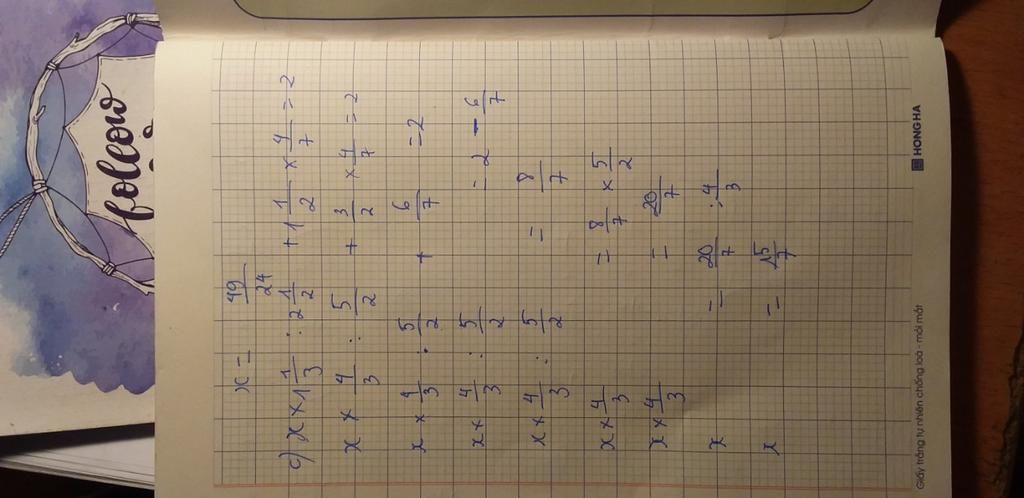 x = 49/24
c) x × 1 1/3 : 2 1/2 + 1 1/2 × 4/7 = 2
x × 4/3 : 5/2 + 3/2 × 4/7 = 2
x × 4/3 : 5/2 + 6/7 = 2
x × 4/3 : 5/2 = 2 - 6/7
x × 4/3 : 5/2 = 8/7
x × 4/3 = 8/7 × 5/2
x × 4/3 = 20/7
x = 20/7 : 4/3
x = 15/7
Giấy trắng tự nhiên chống loá - mỏi mắt
HONG HA
follow